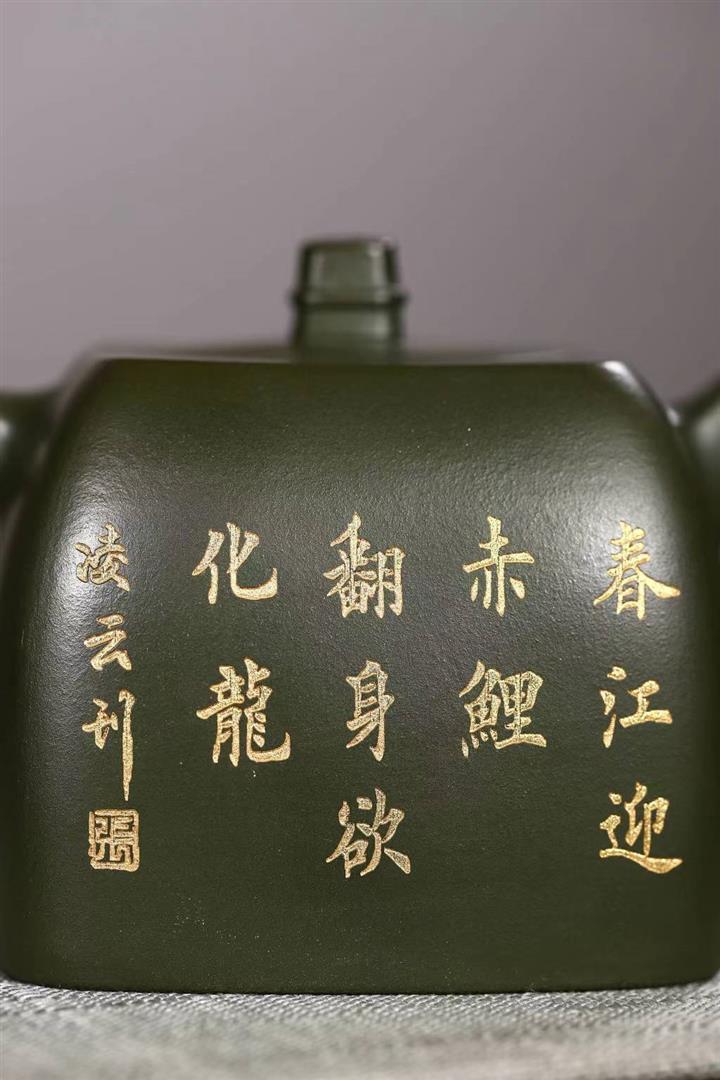 春江迎
赤鲤
翻身欲
化龍
凌云刊
張